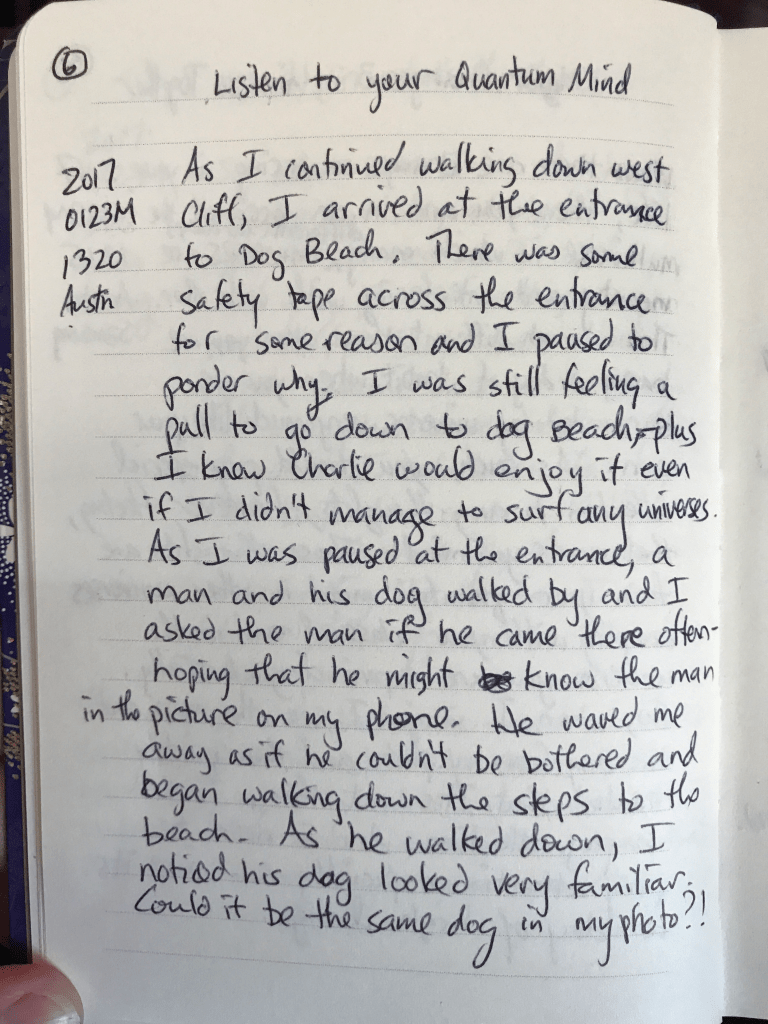 6
Listen to your Quantum Mind
2017 As I continued walking down west
0123M Cliff, I arrived at the entrance
1320 to Dog Beach. There was some
Austin safety tape across the entrance
for some reason and I paused to
ponder why. I was still feeling a
pull to go down to dog Beach, plus
I know Charlie would enjoy it even
if I didn't manage to surf any universes.
As I was paused at the entrance, a
man and his dog walked by and I
asked the man if he came there often-
hoping that he might know the man
in the picture on my phone. He waved me
away as if he couldn't be bothered and
began walking down the steps to the
beach. As he walked down, I
noticed his dog looked very familiar.
Could it be the same dog in my photo?!